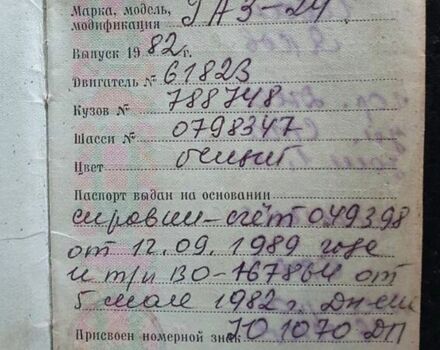 Марка, модель, ГАЗ-24
модификация
Выпуск 1982 г.
Двигатель № 61823
Кузов № 788748
Шасси № 0798347
Цвет белый
Паспорт выдан на основании
справки-счёт 049398
от 12.09.1989 года
и т/п ВО-767864 от
5 мая 1982 г.
Присвоен номерной знак 10 1070 ДП